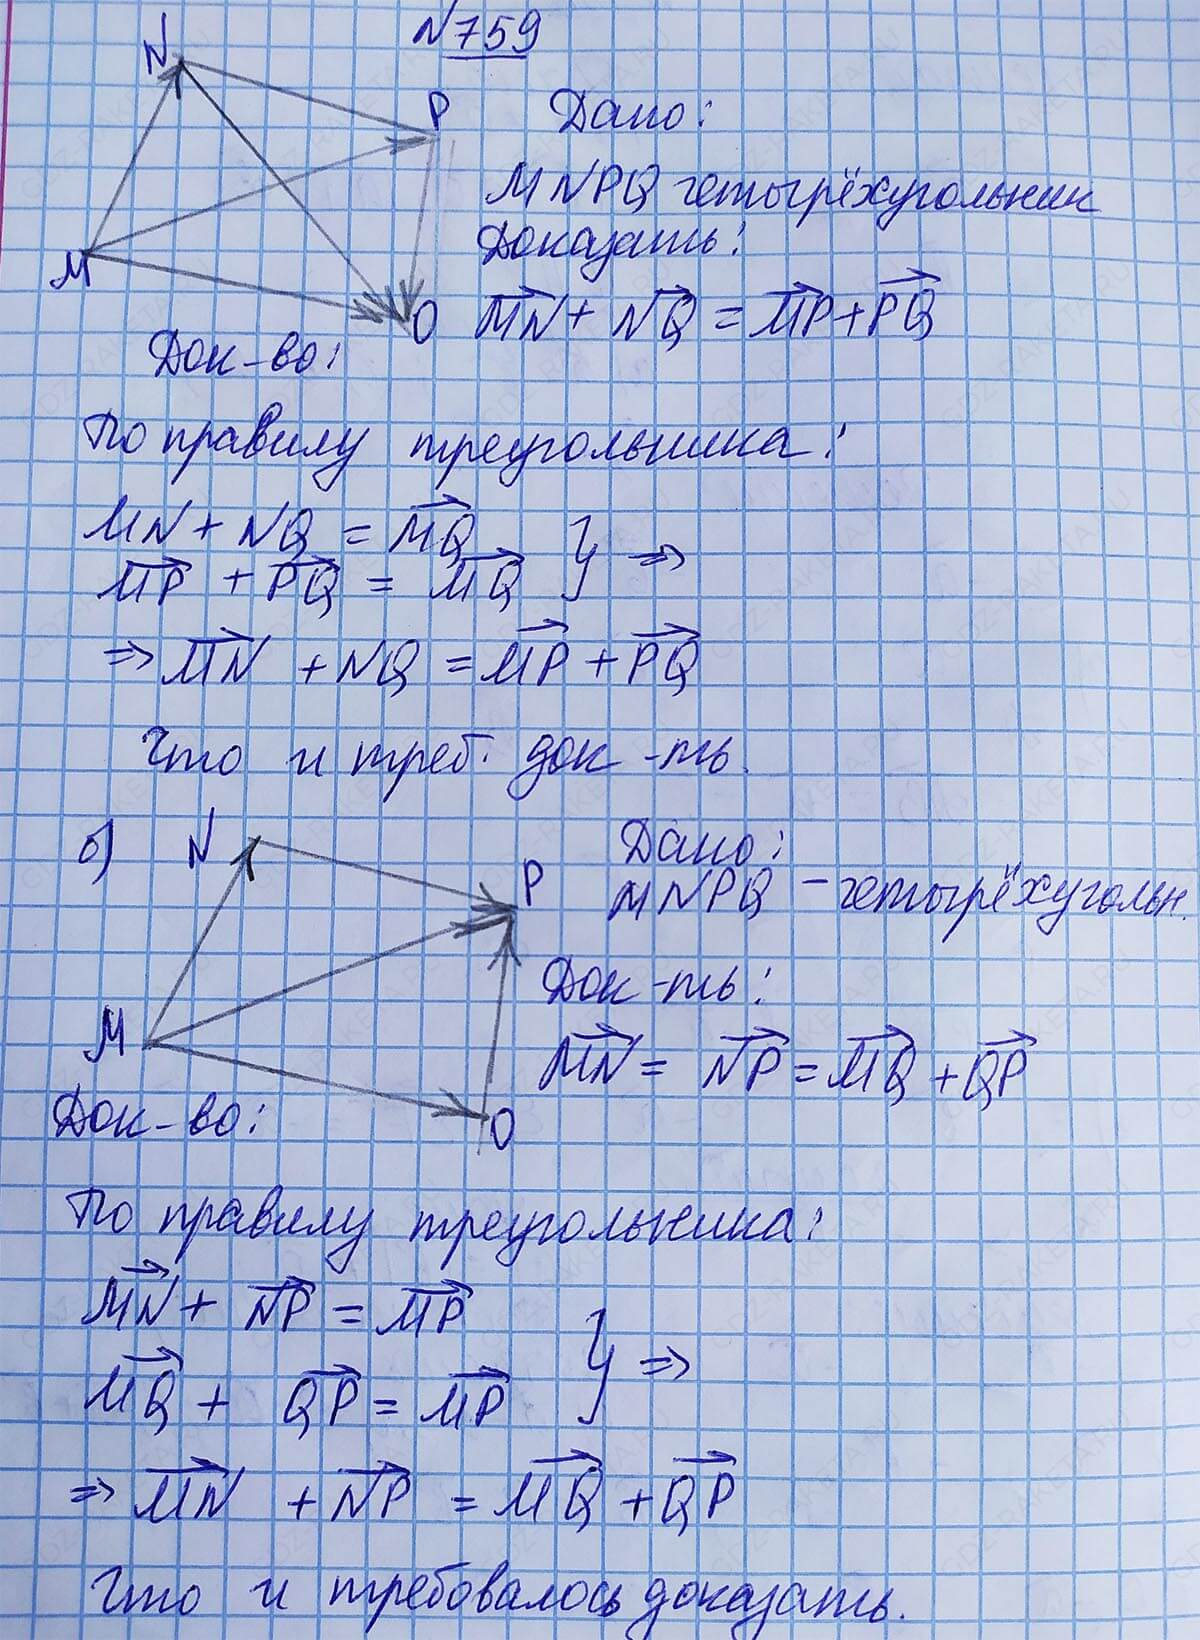 N759
N
P
M
O
Дано:
MNPQ четырёхугольник
Доказать:
MN + NQ = MP + PQ
Док-во:
По правилу треугольника:
MN + NQ = MQ
MP + PQ = MQ } ⇒
⇒ MN + NQ = MP + PQ
Что и треб. док-ть.
б)
N
P
M
O
Дано:
MNPQ – четырёхугольн.
Док-ть:
MN = NP = MQ + QP
Док-во:
По правилу треугольника:
MN + NP = MP
MQ + QP = MP } ⇒
⇒ MN + NP = MQ + QP
Что и требовалось доказать.